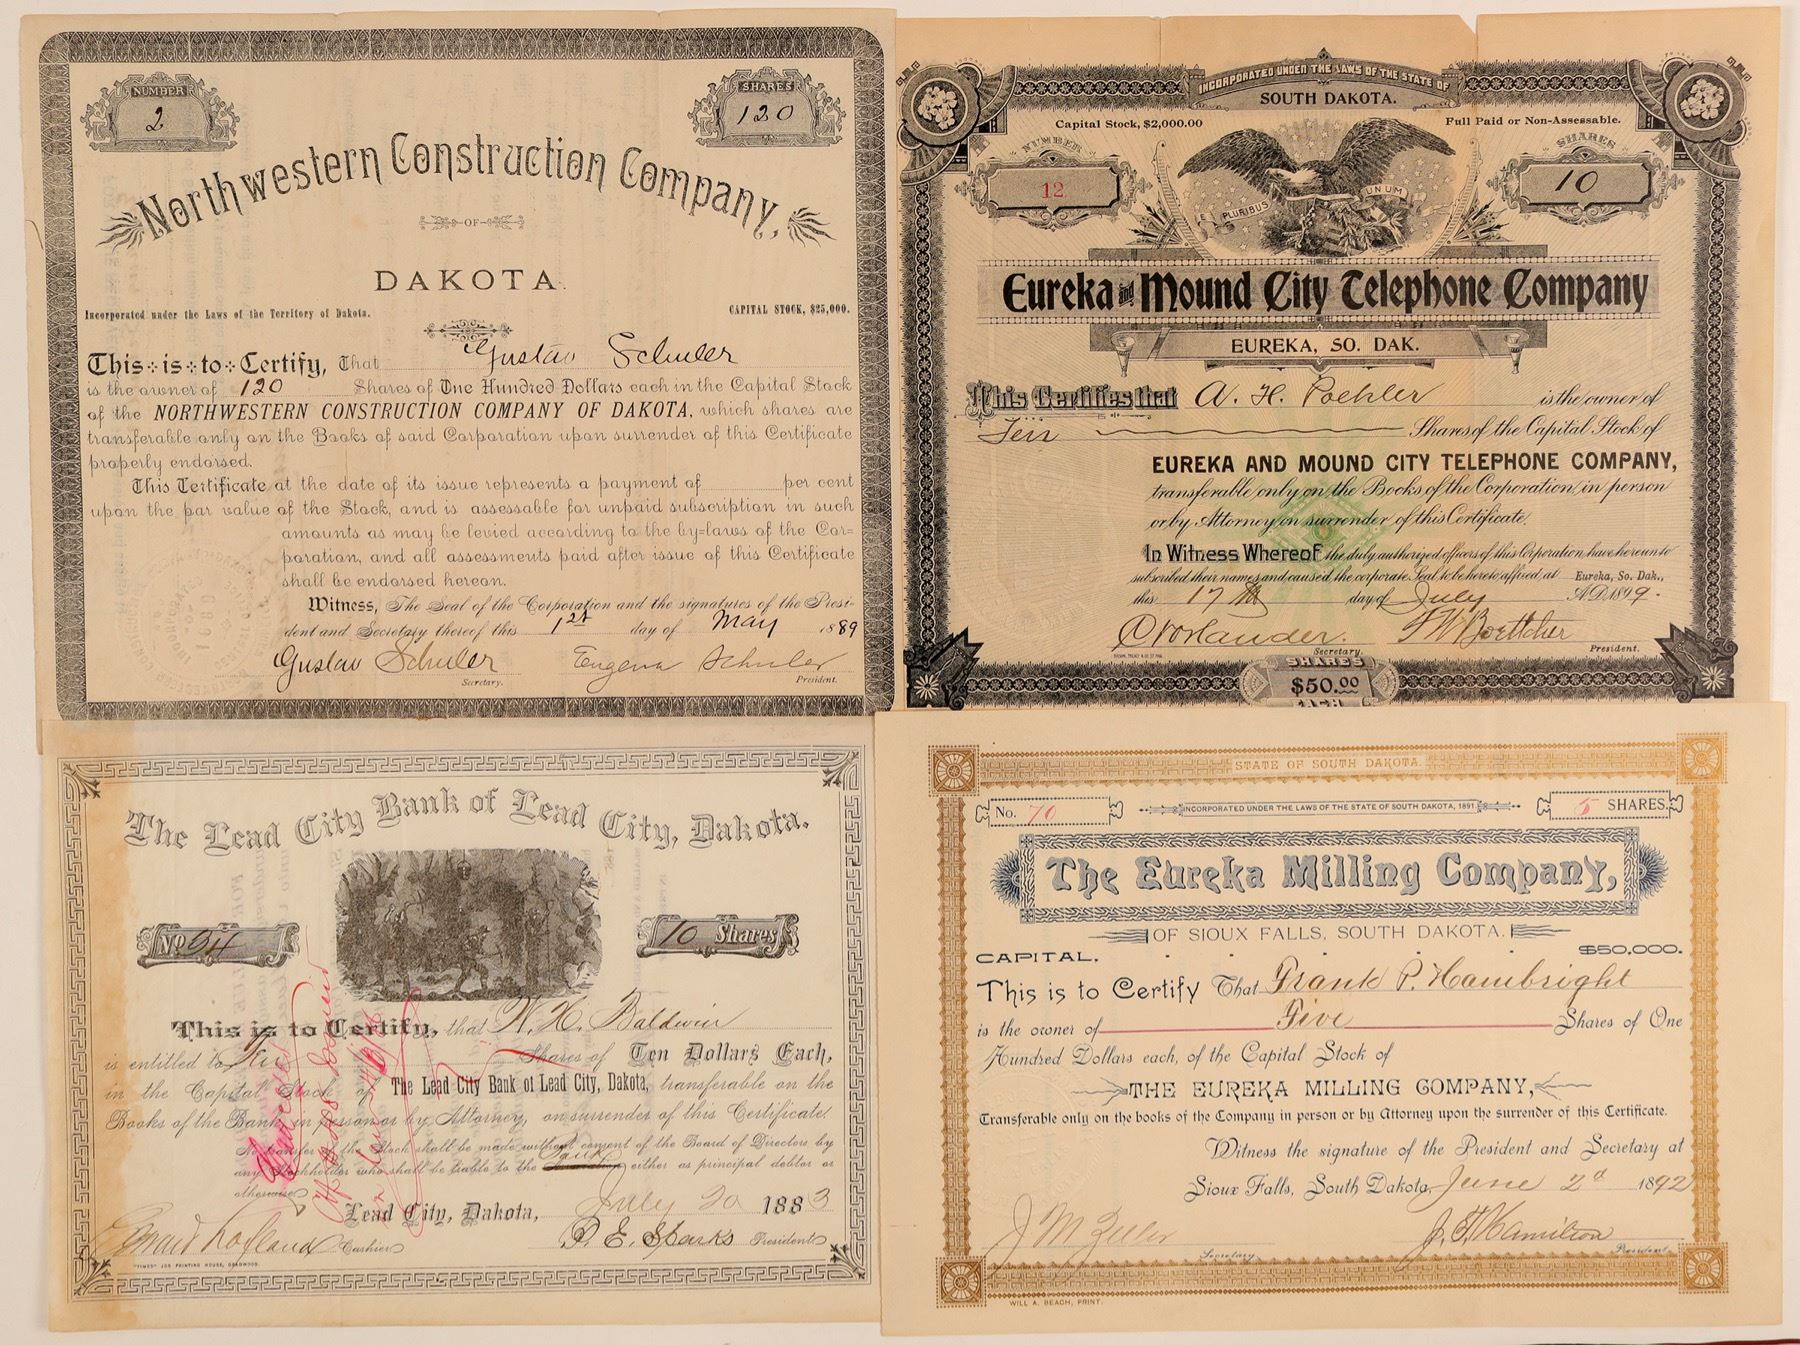 NUMBER
2
SHARES
120
Northwestern Construction Company,
OF
DAKOTA.
Incorporated under the Laws of the Territory of Dakota.
CAPITAL STOCK, $25,000.
This is to Certify, That Gustav Schuler
is the owner of 120 Shares of One Hundred Dollars each in the Capital Stock
of the NORTHWESTERN CONSTRUCTION COMPANY OF DAKOTA, which shares are
transferable only on the Books of said Corporation upon surrender of this Certificate
properly endorsed.
This Certificate at the date of its issue represents a payment of per cent
upon the par value of the Stock, and is assessable for unpaid subscription in such
amounts as may be levied according to the by-laws of the Cor=
poration, and all assessments paid after issue of this Certificate
shall be endorsed hereon.
Witness, The Seal of the Corporation and the signatures of the Presi-
dent and Secretary thereof this 1st day of May 1889
Gustav Schuler Eugena Schuler
Secretary. President.
INCORPORATED UNDER THE LAWS OF THE STATE OF
SOUTH DAKOTA.
Capital Stock, $2,000.00
Full Paid or Non-Assessable.
NUMBER
12
E PLURIBUS UNUM
SHARES
10
Eureka and Mound City Telephone Company
EUREKA, SO. DAK.
This Certifies that A. H. Poehler is the owner of
Ten Shares of the Capital Stock of
EUREKA AND MOUND CITY TELEPHONE COMPANY,
transferable only on the Books of the Corporation, in person
or by Attorney on surrender of this Certificate.
In Witness Whereof the duly authorized officers of this Corporation have hereunto
subscribed their names and caused the corporate Seal to be hereto affixed at Eureka, So. Dak.,
this 17th day of July A.D. 1899.
C Vorlander. F W Boettcher
Secretary. President.
SHARES
$50.00
EACH
The Lead City Bank of Lead City, Dakota.
No 94
10 Shares
This is to Certify, that W. H. Baldwin
is entitled to Ten Shares of Ten Dollars Each,
in the Capital Stock of The Lead City Bank of Lead City, Dakota, transferable on the
Books of the Bank, in person or by Attorney, on surrender of this Certificate.
No transfer of the Stock shall be made without consent of the Board of Directors by
any Stockholder who shall be liable to the Bank either as principal debtor or
otherwise.
Lead City, Dakota, July 20 1883
Cashier P. E. Sparks President
"TIMES" JOB PRINTING HOUSE, DEADWOOD.
STATE OF SOUTH DAKOTA.
No. 70
INCORPORATED UNDER THE LAWS OF THE STATE OF SOUTH DAKOTA, 1891.
5 SHARES.
The Eureka Milling Company,
OF SIOUX FALLS, SOUTH DAKOTA.
CAPITAL. $50,000.
This is to Certify That Frank P. Hambright
is the owner of Five Shares of One
Hundred Dollars each, of the Capital Stock of
THE EUREKA MILLING COMPANY,
Transferable only on the books of the Company in person or by Attorney upon the surrender of this Certificate.
Witness the signature of the President and Secretary at
Sioux Falls, South Dakota, June 2d 1892
J M Zeller J. T. Hamilton
Secretary President
WILL A. BEACH, PRINT.